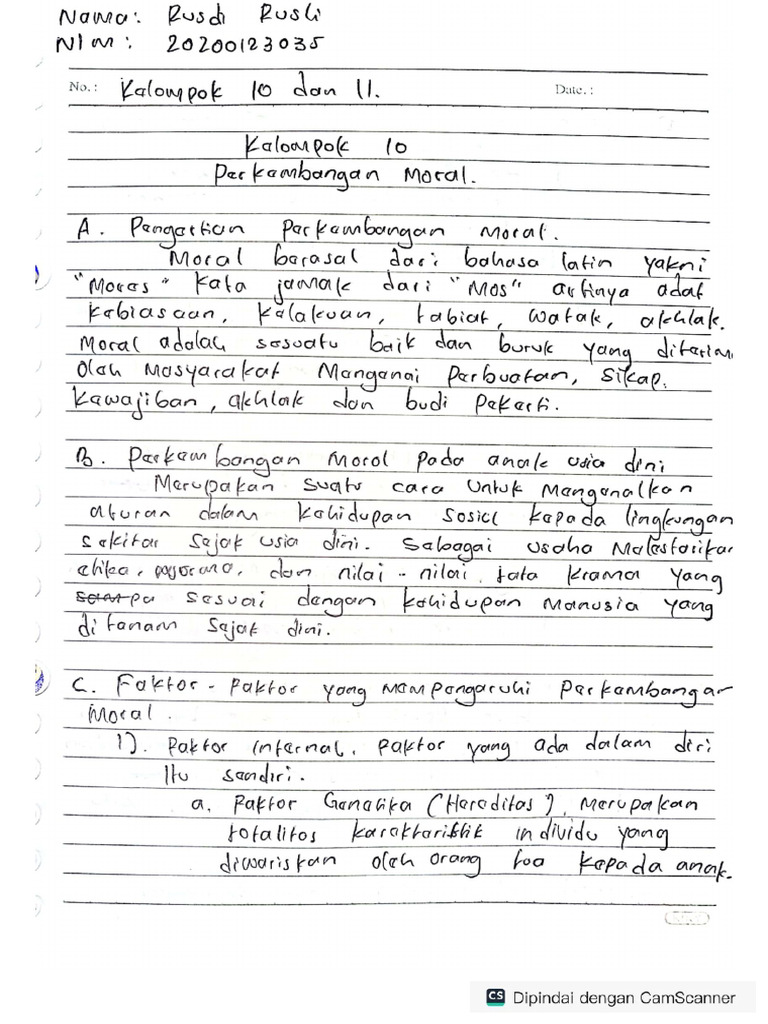 Nama: Rusdi Rusli
NIM: 20200123035
No.: Kalompok 10 dan 11. Date.:
Kalompok 10
Parkambangan Moral.
A. Pangartian Parkambangan Moral.
Moral barasal dari bahasa latin yakni
"Moras" kata jamak dari "Mos" artinya adat
kabiasaan, kalakuan, tabiat, watak, akhlak.
Moral adalah sasuatu baik dan buruk yang ditarima
olah Masyarakat Manganai Parbuatan, sikap,
kawajiban, akhlak dan budi Pakarti.
B. Parkambangan Moral pada anak usia dini
Marupakan suatu cara untuk Manganalkan
aturan dalam kahidupan sosial kapada lingkungan
sakitar sajak usia dini. sabagai usaha Malastarikan
atika, dan nilai-nilai tata krama yang
sasuai dangan kahidupan Manusia yang
di tanam sajak dini.
C. Faktor-Paktor yang Mampangaruhi Parkambangan
Moral.
1). Paktor internal, Paktor yang ada dalam diri
itu sandiri.
a. Paktor Ganatika (Haraditas), Marupakan
totalitas karaktaristik individu yang
diwariskan olah orang toa kapada anak.
CS Dipindai dengan CamScanner